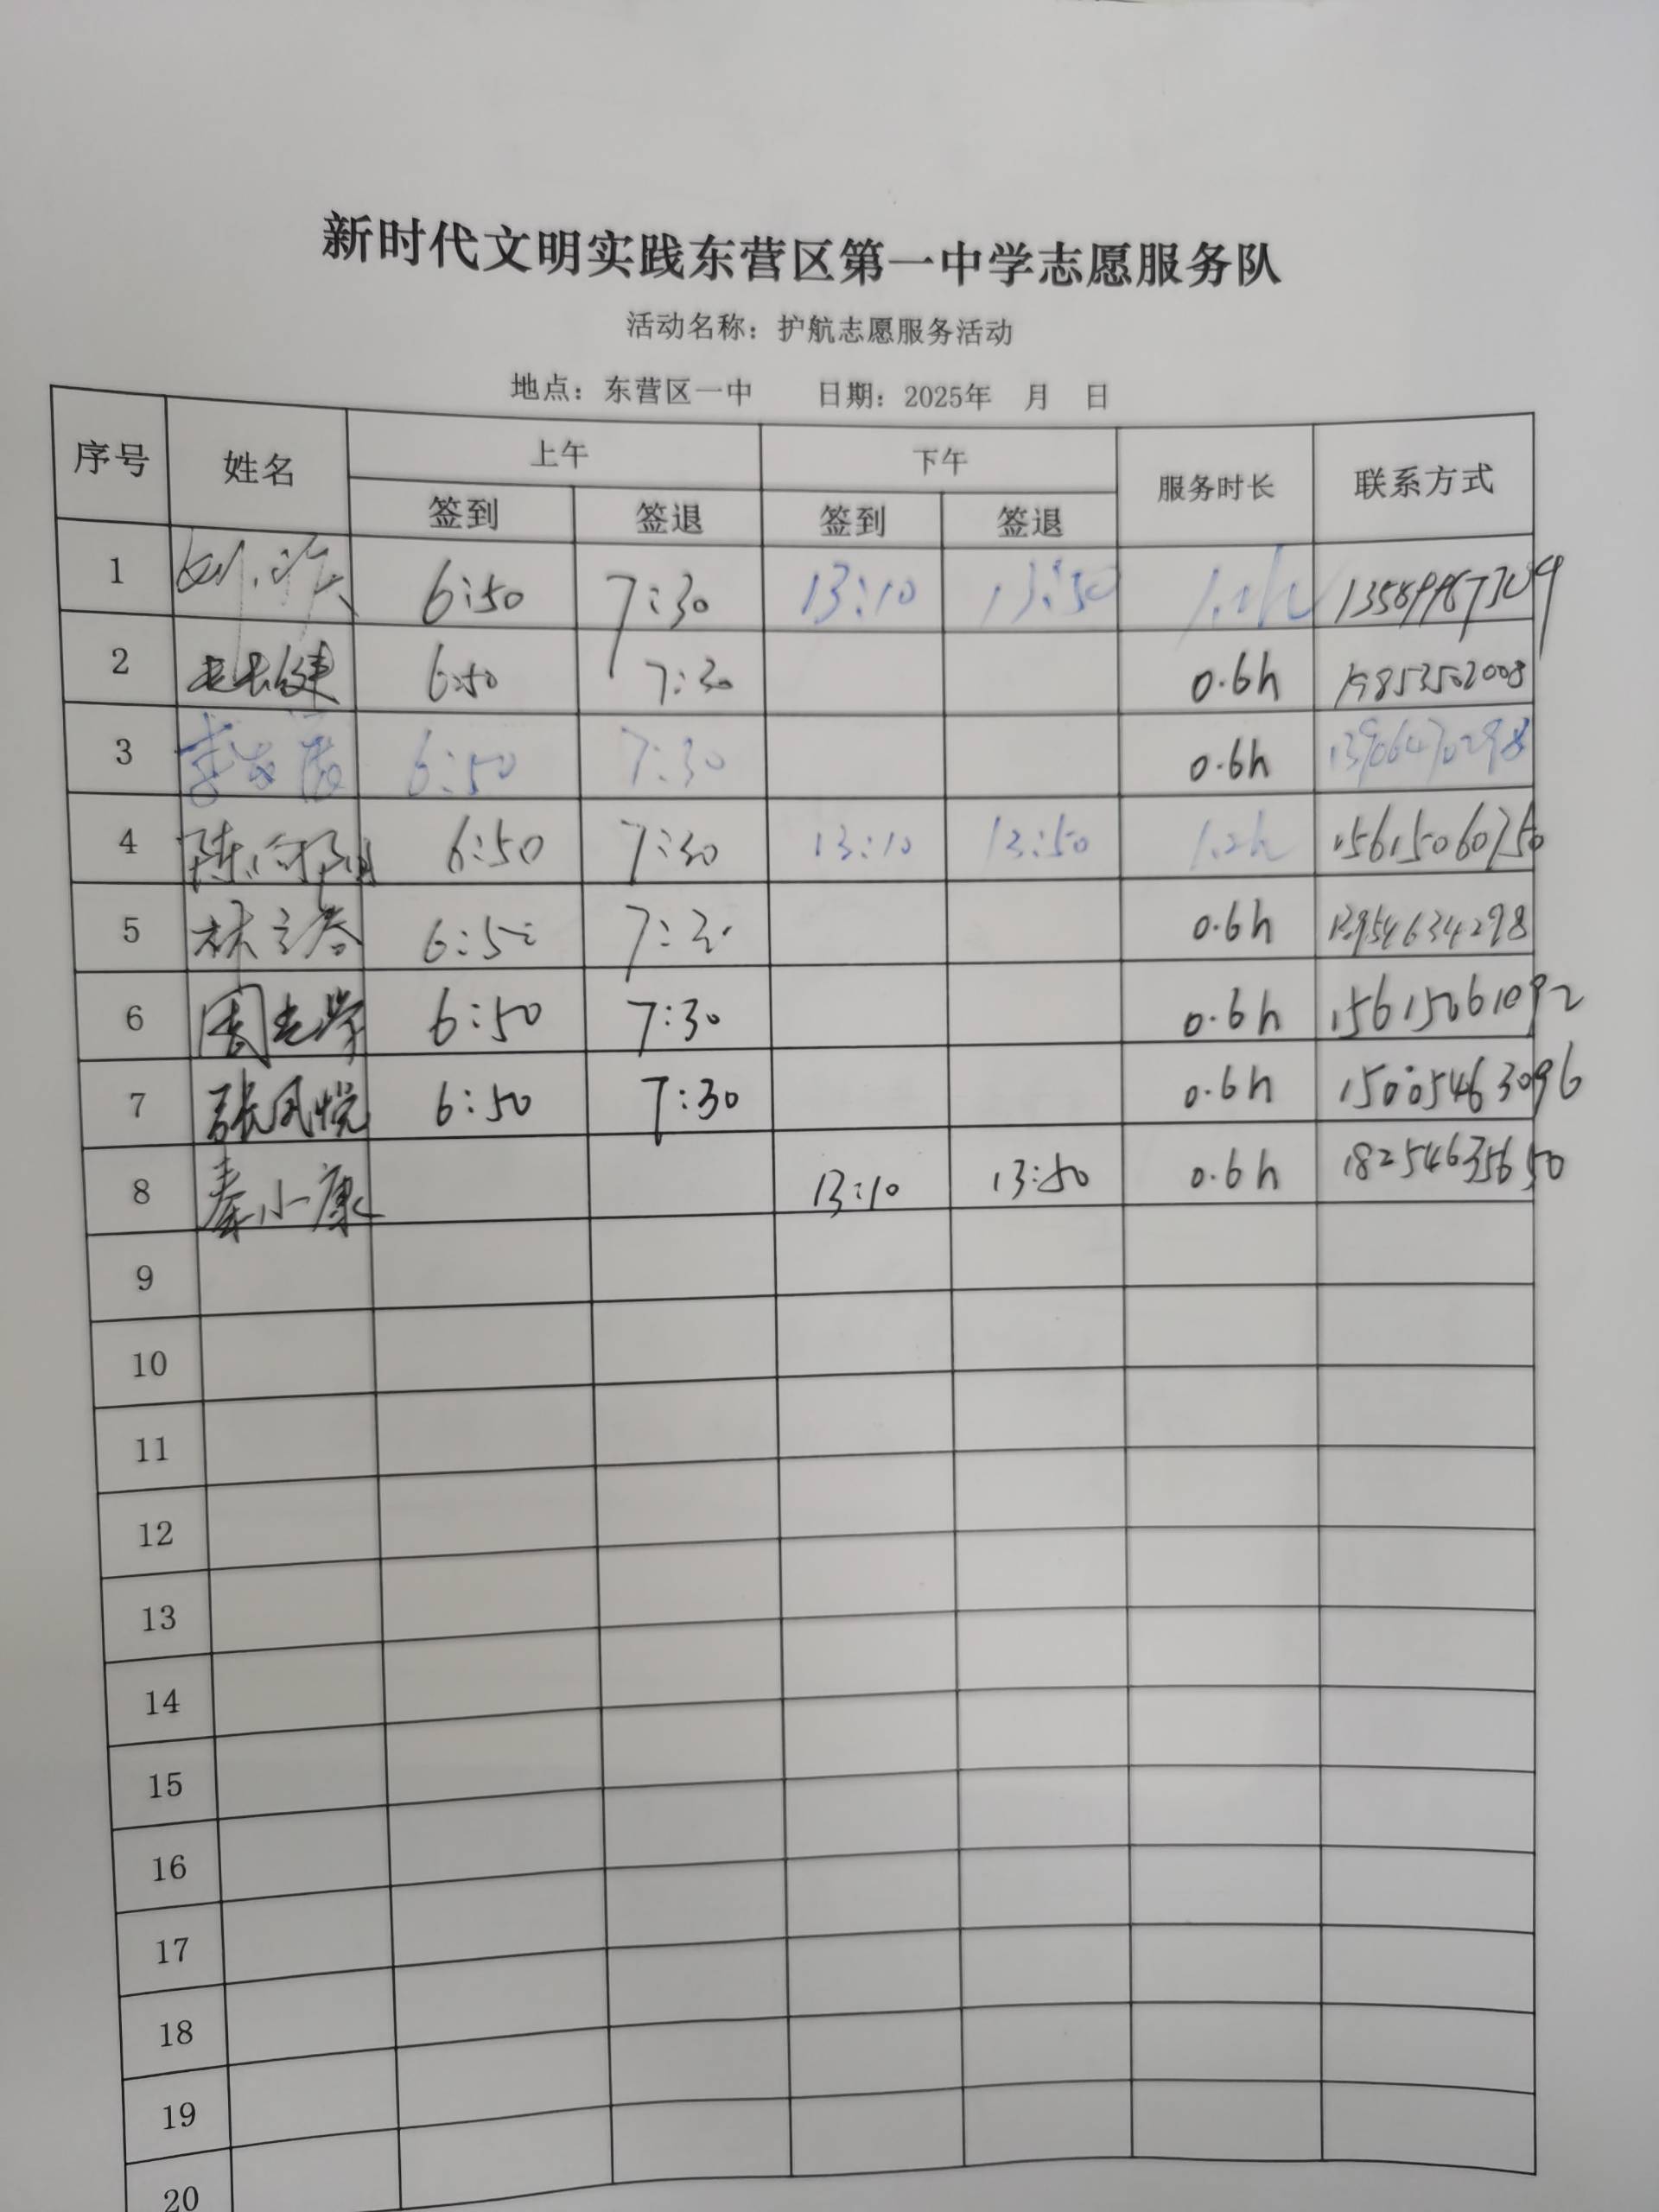 新时代文明实践东营区第一中学志愿服务队
活动名称：护航志愿服务活动
地点：东营区一中 日期：2025年 月 日
序号 姓名 上午 下午 服务时长 联系方式
签到 签退 签到 签退
1 6:50 7:30 13:10 13:50
2 6:50 7:30 0.6h
3 6:50 7:30 0.6h 13906470298
4 陈向阳 6:50 7:30 13:10 13:50 1.2h 15615060750
5 林立春 6:50 7:30 0.6h
6 6:50 7:30 0.6h 15615061092
7 张凤悦 6:50 7:30 0.6h 15005463096
8 秦小康 13:10 13:50 0.6h 18254635650
9
10
11
12
13
14
15
16
17
18
19
20